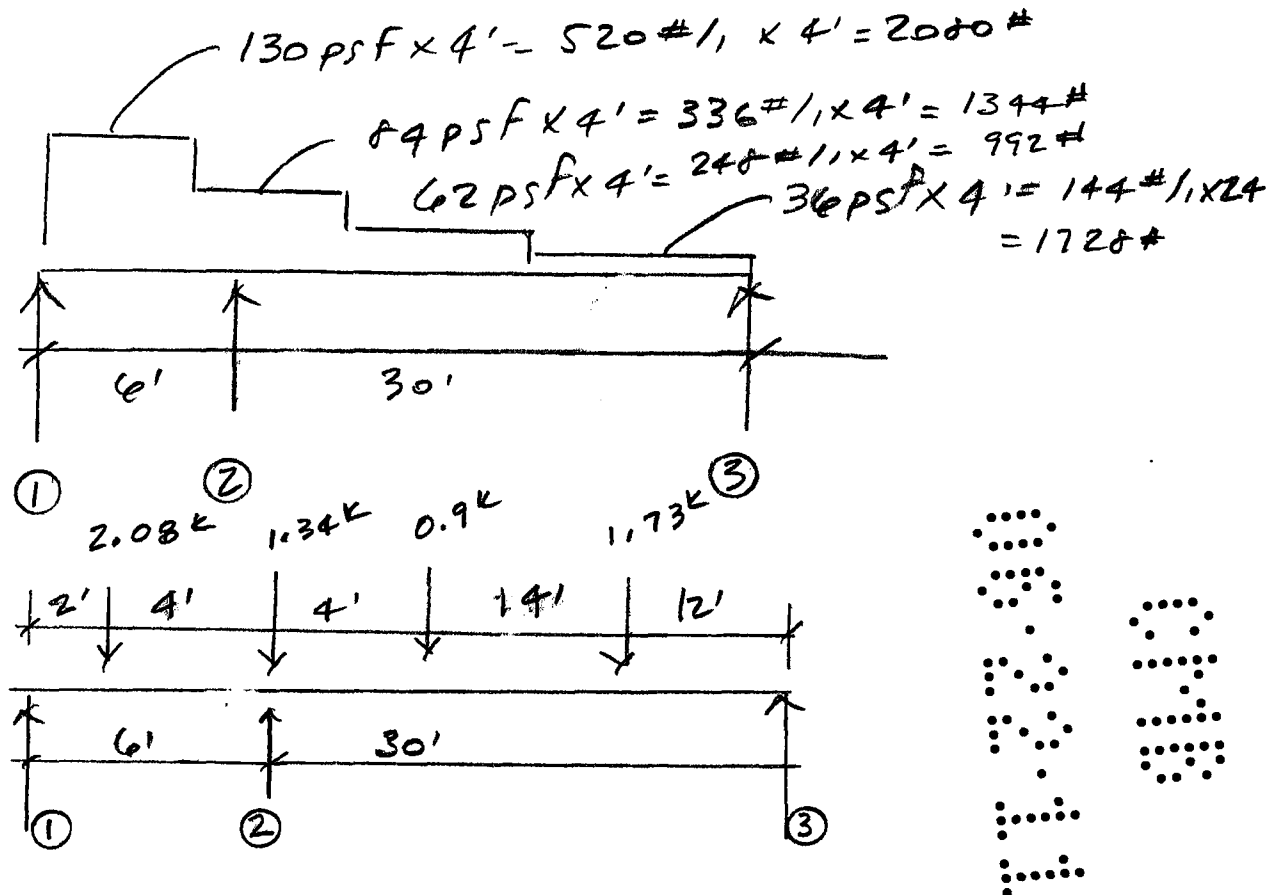 130psf x 4' = 520#/, x 4' = 2080#
84psf x 4' = 336#/, x 4' = 1344#
62psf x 4' = 248#/, x 4' = 992#
36psf x 4' = 144#/, x24
= 1728#
6' 30'
① ② ③
2.08k 1.34k 0.9k 1.73k
2' 4' 4' 14' 12'
6' 30'
① ② ③